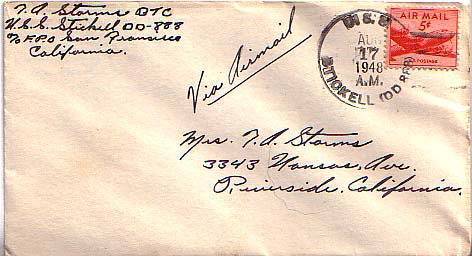 T. A. Storms BTC
U.S.S. Stickell DD-888
c/o F.P.O San Francisco
California.
Via Airmail
U.S.S.
AUG
17
1948
A.M.
STICKELL (DD 888)
AIR MAIL
5¢
POSTAGE
Mrs. T. A. Storms
3343 Kansas, Ave.
Riverside, California.